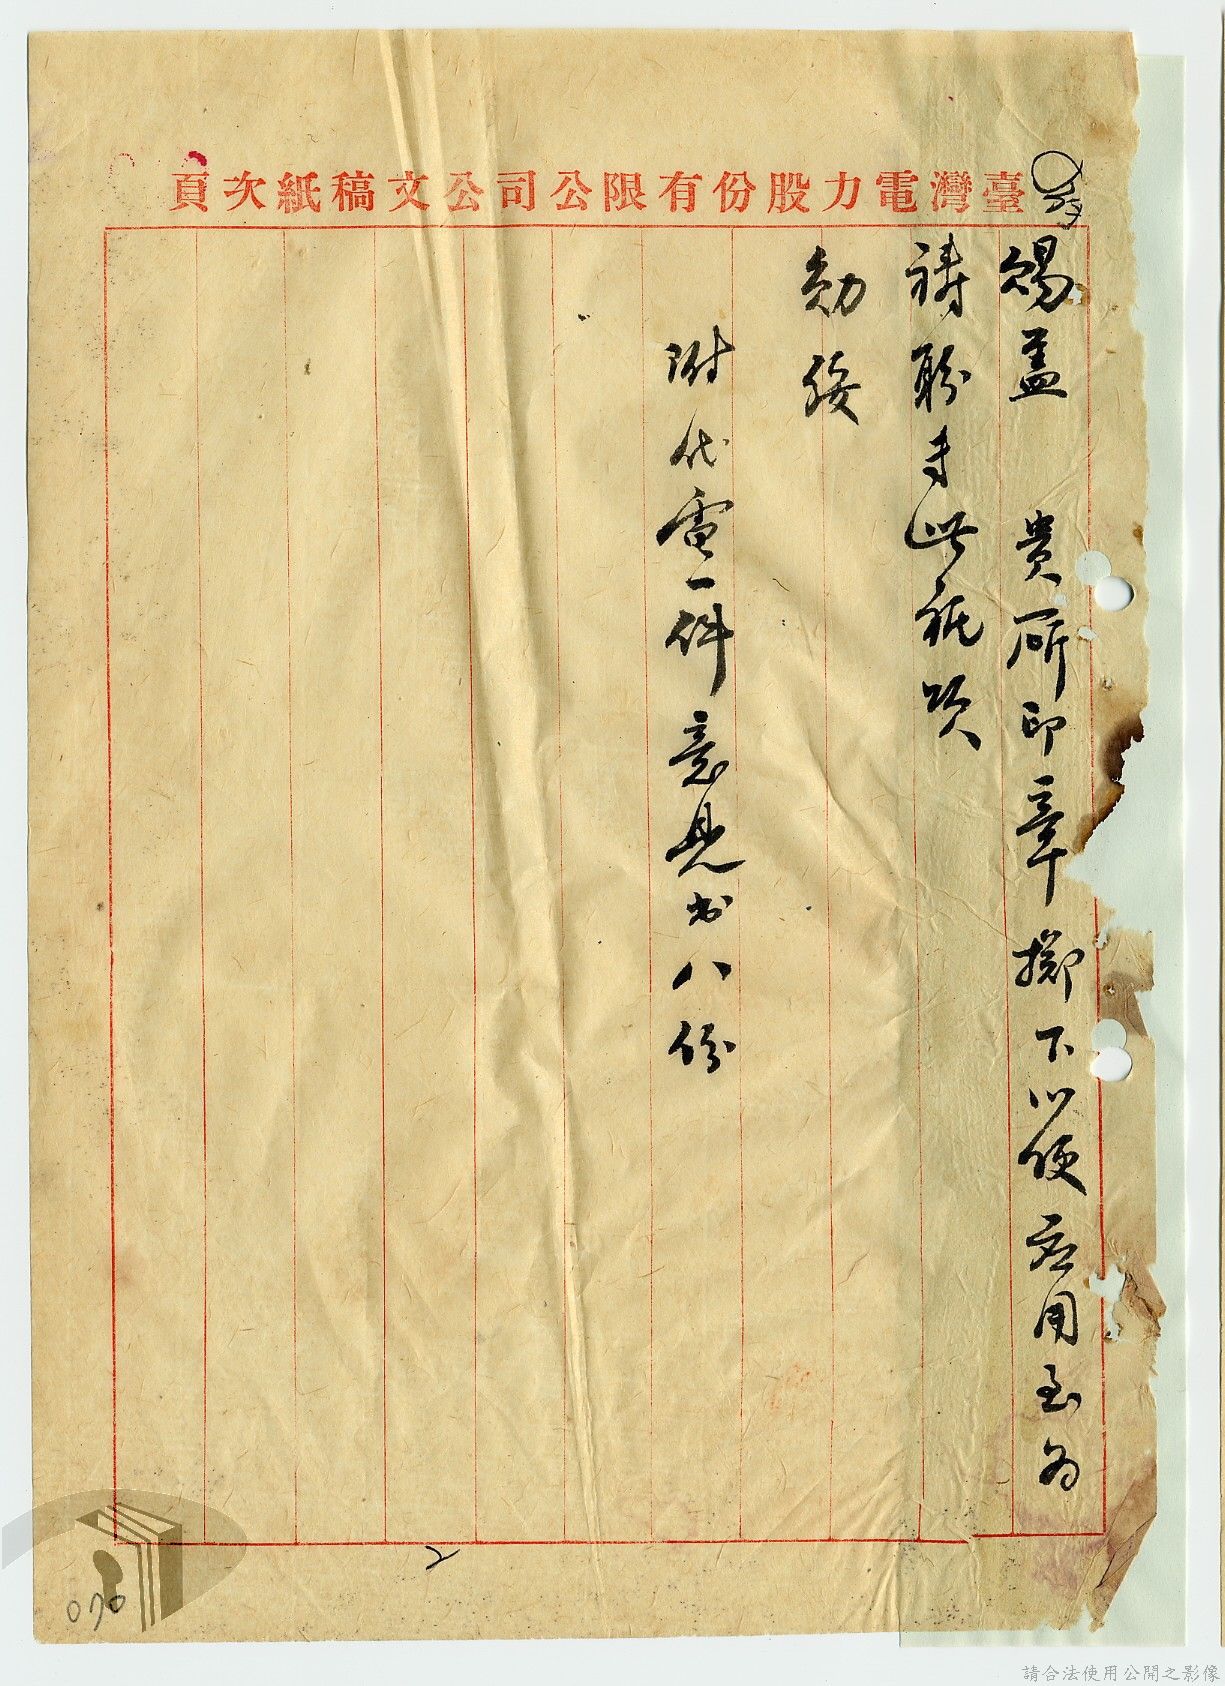 臺灣電力股份有限公司公文稿紙次頁
賜蓋　貴所印章擲下以便應用至為
禱盼專此祗頌
勛綏
附代電一件意見書八份
2
070
請合法使用公開之影像